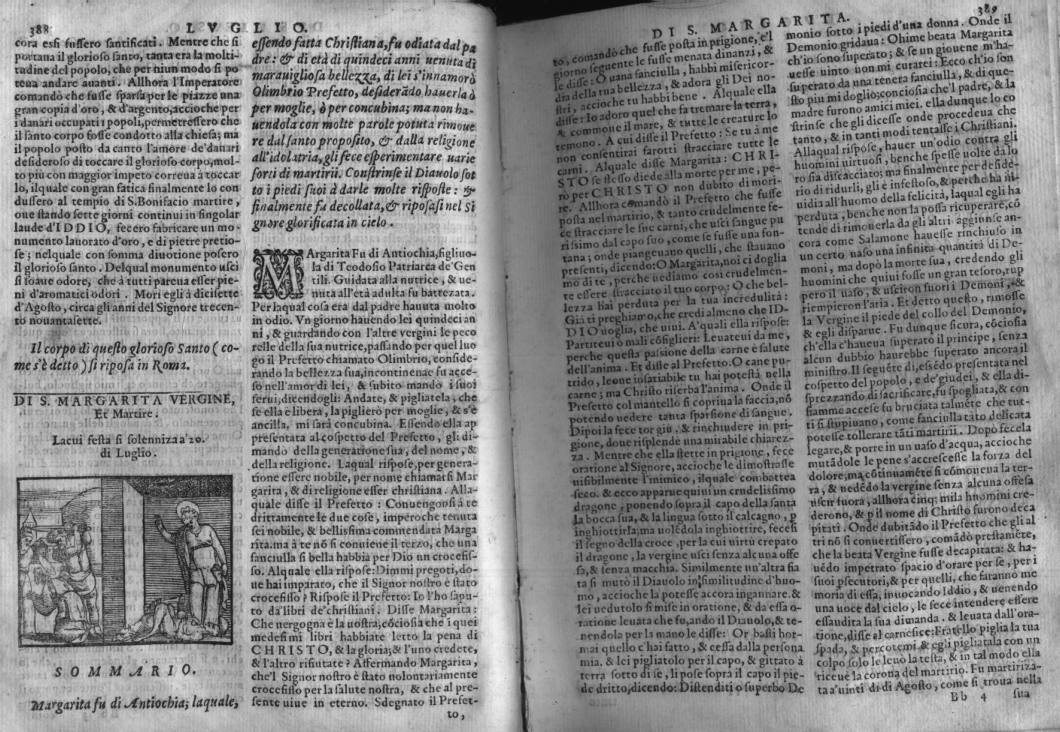 388
LVGLIO.
cora essi fussero santificati. Mentre che si
portaua il glorioso santo, tanta era la molti-
tudine del popolo, che per niun modo si po
teua andare auanti. Allhora l'Imperatore
comandò che fusse sparsa per le piazze una
gran copia d'oro, & d'argento, accioche per
i danari occupati i popoli, permettessero che
il santo corpo fosse condotto alla chiesa; ma
il popolo posto da canto l'amore de'danari
desideroso di toccare il glorioso corpo, mol-
to più con maggior impeto correua à toccar
lo, ilquale con gran fatica finalmente lo con
dussero al tempio di S.Bonifacio martire,
oue stando sette giorni continui in singolar
laude d'IDDIO, fecero fabricare un mo-
numento lauorato d'oro, e di pietre pretio-
se; nelquale con somma diuotione posero
il glorioso santo. Delqual monumento usci
si soaue odore, che à tutti pareua esser pie-
ni d'aromatici odori. Mori egli à dicisette
d'Agosto, circa gli anni del Signore trecen-
to nouantasette.
Il corpo di questo glorioso Santo (co-
me s'è detto) si riposa in Roma.
DI S. MARGARITA VERGINE,
Et Martire.
Lacui festa si solennizza a'20.
di Luglio.
SOMMARIO.
Margarita fu di Antiochia; laquale,
essendo fatta Christiana, fu odiata dal pa
dre: & di età di quindeci anni uenuta di
marauigliosa bellezza, di lei s'innamorò
Olimbrio Prefetto, desiderādo hauerla ò
per moglie, ò per concubina; ma non ha-
uendola con molte parole potuta rimoue
re dal santo proposito, & dalla religione
all'idolatria, gli fece esperimentare uarie
sorti di martirii. Constrinse il Diauolo sot
to i piedi suoi à darle molte risposte: &
finalmente fu decollata, & riposasi nel Si
gnore glorificata in cielo.
MArgarita Fu di Antiochia, figliuo-
la di Teodosio Patriarca de'Gen
tili. Guidata alla nutrice, & ue-
nuta all'età adulta fu battezata.
Per laqual cosa era dal padre hauuta molto
in odio. Vn giorno hauendo lei quindeci an
ni, & guardando con l'altre vergini le peco
relle della sua nutrice, passando per quel luo
go il Prefetto chiamato Olimbrio, conside-
rando la bellezza sua, incontinenaē fu acce-
so nell'amor di lei, & subito mandò i suoi
serui, dicendogli: Andate, & pigliatela, che
se ella è libera, la piglierò per moglie, & s'è
ancilla, mi sarà concubina. Essendo ella ap
presentata al cospetto del Prefetto, gli di-
mandò della generatione sua, del nome, &
della religione. Laqual rispose, per genera-
tione essere nobile, per nome chiamarsi Mar
garita, & di religione esser christiana. Alla-
quale disse il Prefetto: Conuengonsi à te
drittamente le due cose, imperoche tenuta
sei nobile, & bellissima commendata Marga
rita. ma à te nō si conuiene il terzo, che una
fanciulla si bella habbia per Dio un crocefis-
so. Alquale ella rispose: Dimmi pregoti, do-
ue hai imparato, che il Signor nostro è stato
crocefisso? Rispose il Prefetto: Io l'ho sapu-
to da'libri de'christiani. Disse Margarita:
Che uergogna è la uostra, cōciosia che i quei
medesimi libri habbiate letto la pena di
CHRISTO, & la gloria; & l'uno credete,
& l'altro rifiutate? Affermando Margarita,
che'l Signor nostro è stato uolontariamente
crocefisso per la salute nostra, & che al pre-
sente uiue in eterno. Sdegnato il Prefet-
to,
DI S. MARGARITA.
389
to, comandò che fusse posta in prigione, e'l
giorno seguente le fusse menata dinanzi, &
le disse: O uana fanciulla, habbi misericor-
dia della tua bellezza, & adora gli Dei no-
stri, accioche tu habbi bene. Alquale ella
disse: Io adoro quel che fa tremare la terra,
& commoue il mare, & tutte le creature lo
temono. A cui disse il Prefetto: Se tu à me
non consentirai farotti stracciare tutte le
carni. Alquale disse Margarita: CHRI-
STO se stesso diede alla morte per me, pe-
rò per CHRISTO non dubito di mori-
re. Allhora comandò il Prefetto che fusse
posta nel martirio, & tanto crudelmente fe-
ce stracciare le sue carni, che usci sangue pu
rissimo dal capo suo, come se fusse una fon-
tana; onde piangeuano quelli, che stauano
presenti, dicendo: O Margarita, noi ci doglia
mo di te, perche uediamo cosi crudelmen-
te essere stracciato il tuo corpo: O che bel-
lezza hai perduta per la tua incredulità:
Già ti preghiamo, che credi almeno che ID-
DIO uoglia, che uiui. A'quali ella rispose:
Partiteui o mali cōsiglieri: Leuateui da me,
perche questa passione della carne è salute
dell'anima. Et disse al Prefetto. O cane pu-
trido, leone insatiabile tu hai potestà nella
carne; ma Christo riserba l'anima. Onde il
Prefetto col mantello si coprina la faccia, nō
potendo uedere tanta sparsione di sangue.
Dipoi la fece tor giù, & rinchiudere in pri-
gione, doue risplende una mirabile chiarez-
za. Mentre che ella stette in prigione, fece
oratione al Signore, accioche le dimostrasse
uisibilmente l'inimico, ilquale combattea
seco. & ecco apparue quiui un crudelissimo
dragone, ponendo sopra il capo della santa
la bocca sua, & la lingua sotto il calcagno, p
inghiottirla; ma uolēdola inghiottire, fecesi
il segno della croce, per la cui uirtù crepato
il dragone, la vergine usci senza alcuna offe
sa, & senza macchia. Similmente un'altra fia
ta si mutò il Diauolo in similitudine d'huo-
mo, accioche la potesse accora ingannare. &
lei uedutolo si mise in oratione, & da essa o-
ratione leuata che fu, andò il Diauolo, & te-
nendola per la mano le disse: Or basti hor-
mai quello c'hai fatto, & cessa dalla persona
mia. & lei pigliatolo per il capo, & gittato à
terra sotto di se, li pose sopra il capo il pie-
de dritto, dicendo: Distenditi o superbo De
monio sotto i piedi d'una donna. Onde il
Demonio gridaua: Ohime beata Margarita
ch'io sono superato; & se un giouene m'ha-
uesse uinto non mi curarei: Ecco ch'io son
superato da una tenera fanciulla, & di que-
sto piu mi doglio; conciosia che'l padre, & la
madre furono amici miei. ella dunque lo co
strinse che gli dicesse onde procedeua che
tanto, & in tanti modi tentasse i Christiani.
Allaqual rispose, hauer un'odio contra gli
huomini uirtuosi, benche spesse uolte da lo
ro sia discacciato; ma finalmente per deside-
rio di ridurli, gli è infestoso, & perche ha in-
uidia all'huomo della felicità, laqual egli ha
perduta, benche non la possa ricuperare, cō
tende di rimouerla da gli altri. aggiunse an-
cora come Salamone hauesse rinchiuso in
un certo uaso una infinita quantità di De-
moni, ma dapò la morte sua, credendo gli
huomini che quiui fosse un gran tesoro, rup
pero il uaso, & usciron fuori i Demoni, &
riempieron l'aria. Et detto questo, rimosse
la Vergine il piede del collo del Demonio,
& egli disparue. Fu dunque sicura, cōciosia
ch'ella c'haueua superato il principe, senza
alcun dubbio haurebbe superato ancora il
ministro. Il seguēte dì, essēdo presentata nel
cospetto del popolo, e de'giudei, & ella di-
sprezzando di sacrificare, fu spogliata, & con
fiamme accese fu bruciata talmēte che tut-
ti si stupiuano, come fanciulla tāto delicata
potesse tollerare tāti martirii. Dopò fecela
legare, & porre in un uaso d'acqua, accioche
mutādole le pene s'accrescesse la forza del
dolore, ma cōtinuamēte si cōmoueua la ter-
ra, & uedēdo la vergine senza alcuna offesa
uscir fuora, allhora cinq; mila huomini cre-
derono, & p il nome di Christo furono deca
pitati. Onde dubitādo il Prefetto che gli al
tri nō si conuertissero, comādò prestamēte,
che la beata Vergine fusse decapitata: & ha-
uēdo impetrato spacio d'orare per se, per i
suoi psecutori, & per quelli, che faranno me
moria di essa, inuocando Iddio, & uenendo
una uoce dal cielo, le fece intendere essere
essaudita la sua diuanda. & leuata dall'ora-
tione, disse al carnefice: Fratello piglia la tua
spada, & percotemi & egli pigliatala con un
colpo solo le leuò la testa, & in tal modo ella
riceuè la corona del martirio. Fu martiriza-
ta a'uinti dì di Agosto, come si troua nella
Bb 4
sua